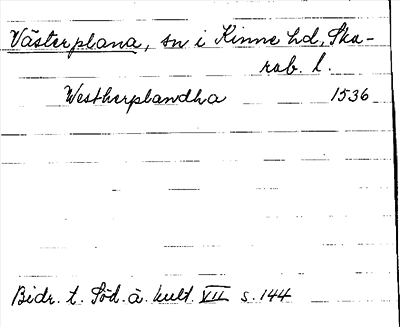 Västerplana, sn i Kinne hd, Ska-
rab. l.
Westherplandha 1536
Bidr. t. Söd. å. hult. VII s. 144